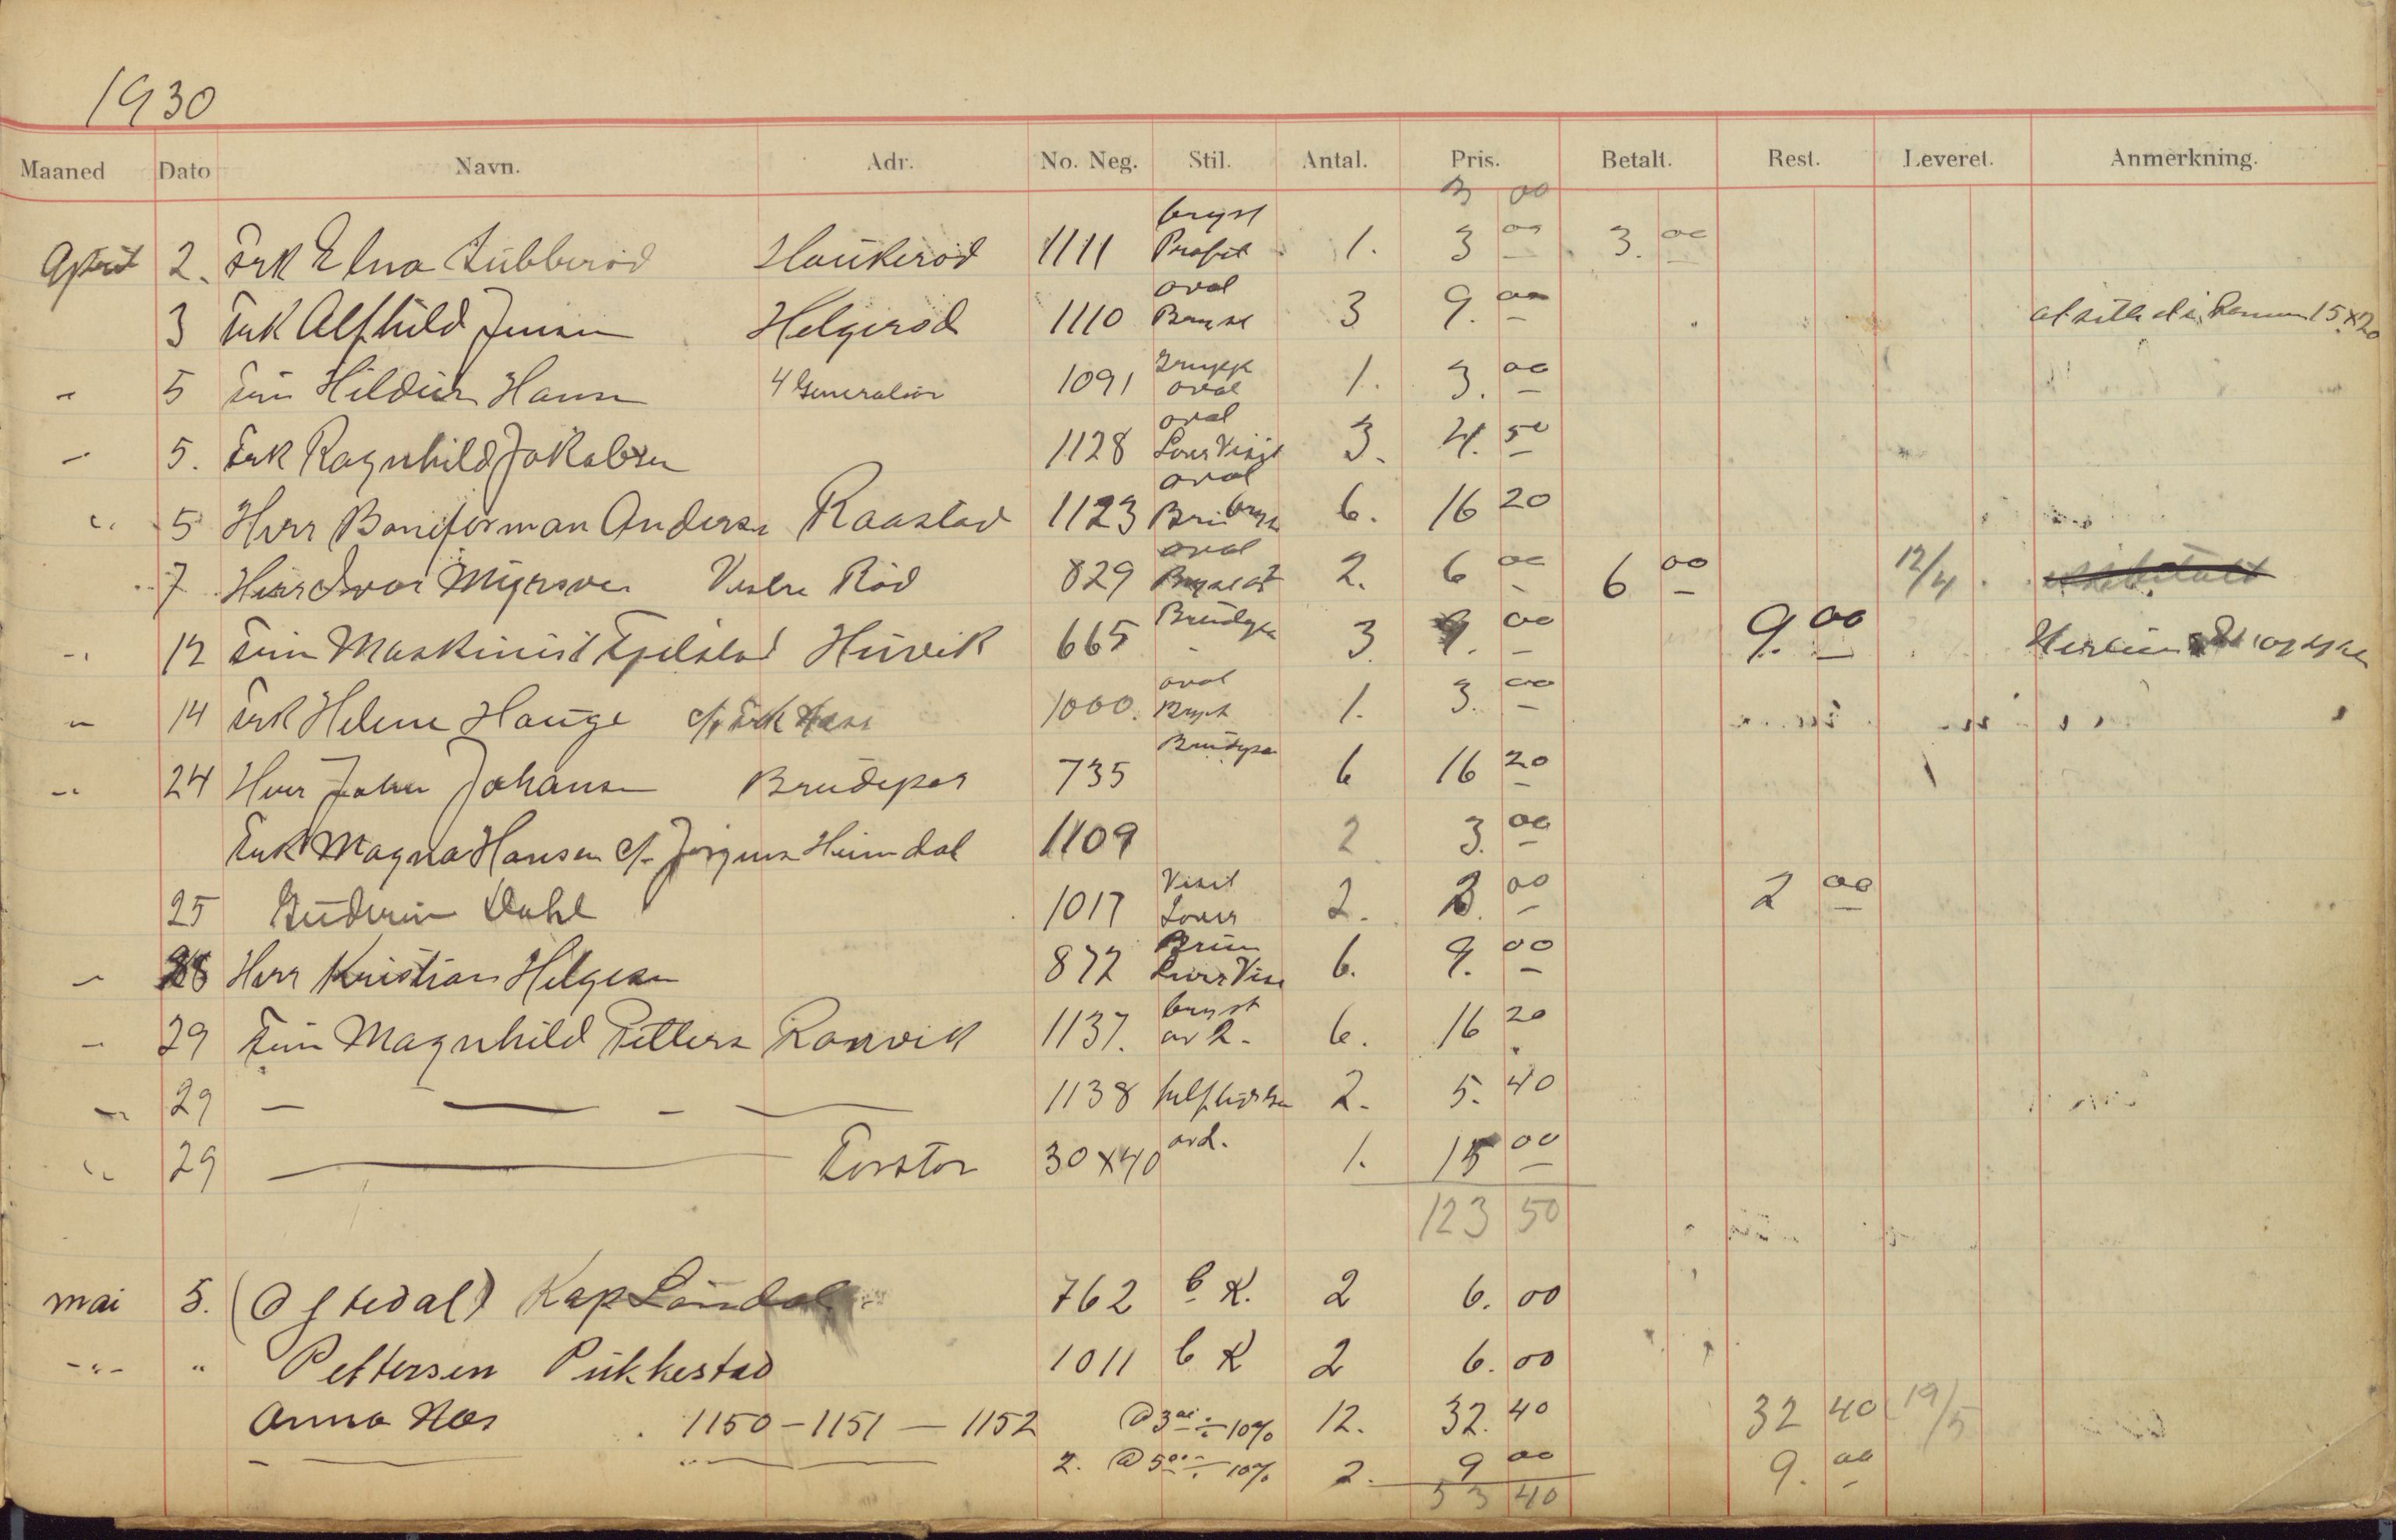 1930
Maaned Dato Navn. Adr. No. Neg. Stil. Antal. Pris. Betalt. Rest. Leveret. Anmerkning.
3 00
bryst
April 2. Frk Elna Lübberöd Haukeröd 1111 Profil 1. 3 00 3. 00
oval
3 Frk Alfhild Jensen Helgeröd 1110 Bryst 3 9. 00 15x20
Grupp
5 Hildur Hansen 4 Generation 1091 oval 1. 3. 00
oval
5. Frk Ragnhild Jakobsen 1128 Visit 3. 4. 50
oval
5 Herr Anderse Raastad 1123 bryst 6. 16 20
oval
7 Herr Ivar Vestre Röd 829 2. 6 00 6 00 12/4
Brudepar
12 Maskinist Hüvik 665 3 9. 00 9. 00
oval
14 Frk Helene Hauge c/o Frk 1000. Bryst 1. 3. 00
Brudepar
24 Herr John Johansen Brudepar 735 6 16 20
Frk Magna Hansen c/o Jörgensen Heimdal 1109 2 3. 00
Visit
25 Gudrun Dahl 1017 2. 3. 00 2 00
Brun
28 Herr Kristian Helgesen 872 Visi 6. 9. 00
bryst
29 Magnhild Petters Ranvik 1137. 6. 16 20
29 — — — — 1138 2. 5. 40
29 — Forstör 30x40 ord. 1. 15 00
123 50
mai 5. (Oftedal) Kap 762 b K. 2 6. 00
-"- " Pettersen Pükkestad 1011 b K 2 6. 00
Anna Næs 1150 - 1151 — 1152 @ 3 00 ÷ 10% 12. 32. 40 32 40 19/5
— — 2. @ 5 00 ÷ 10% 2. 9 00 9. 00
53 40